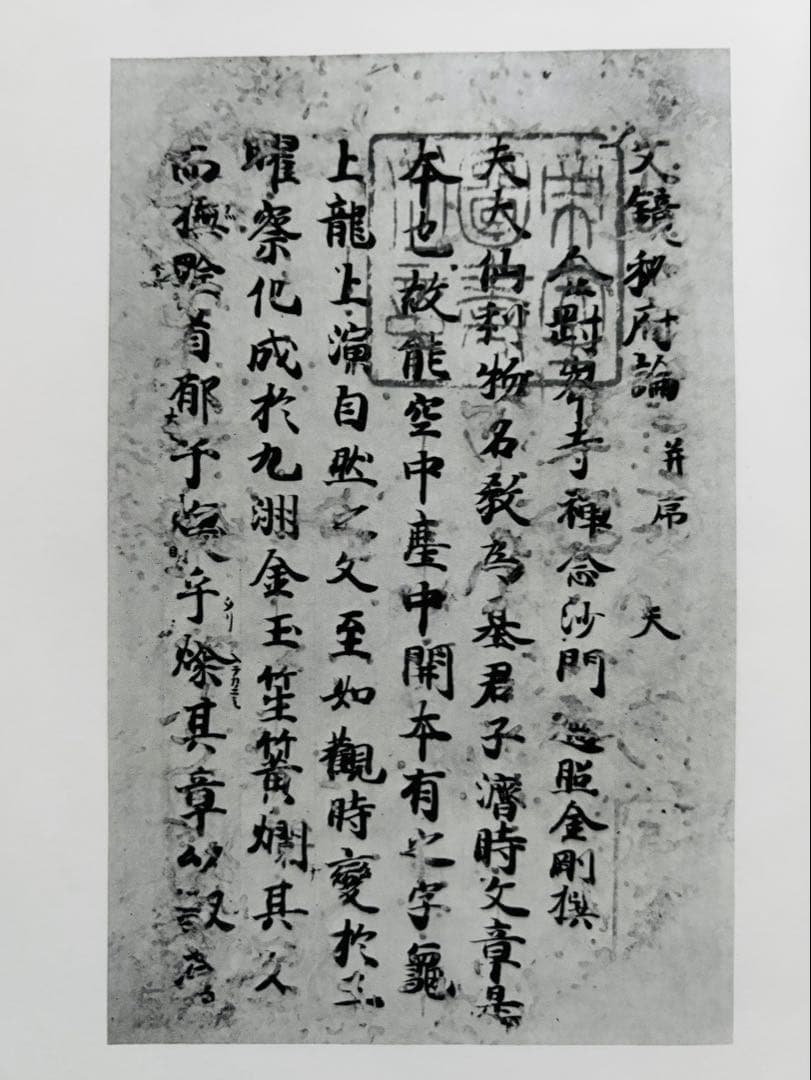 文鏡秘府論 并序 天
金剛峯寺禪念沙門遍照金剛撰
夫大仙利物名教為基君子濟時文章是
本也故能空中塵中開本有之字龜
上龍上演自然之文至如觀時變於三
曜察化成於九洲金玉笙簧爛其文
而撫黔首郁乎煥乎燦其章以馭蒼